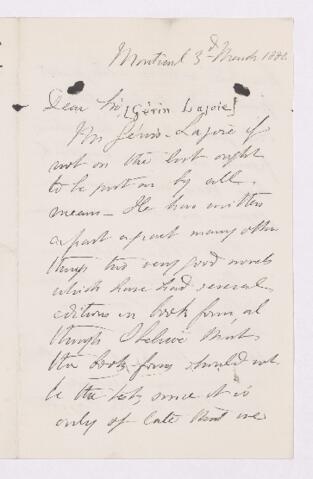 Montreal 3d March 188
Dear Sir [Gérin Lajoie]
Mr Gérin-Lajoie if
not on the list ought
to be put on by all
means - He has written
apart apart many other
things two very good novels
which have had several
editions in book form, al
though I believe that
the book form should not
be the test, since it is
only of late that we